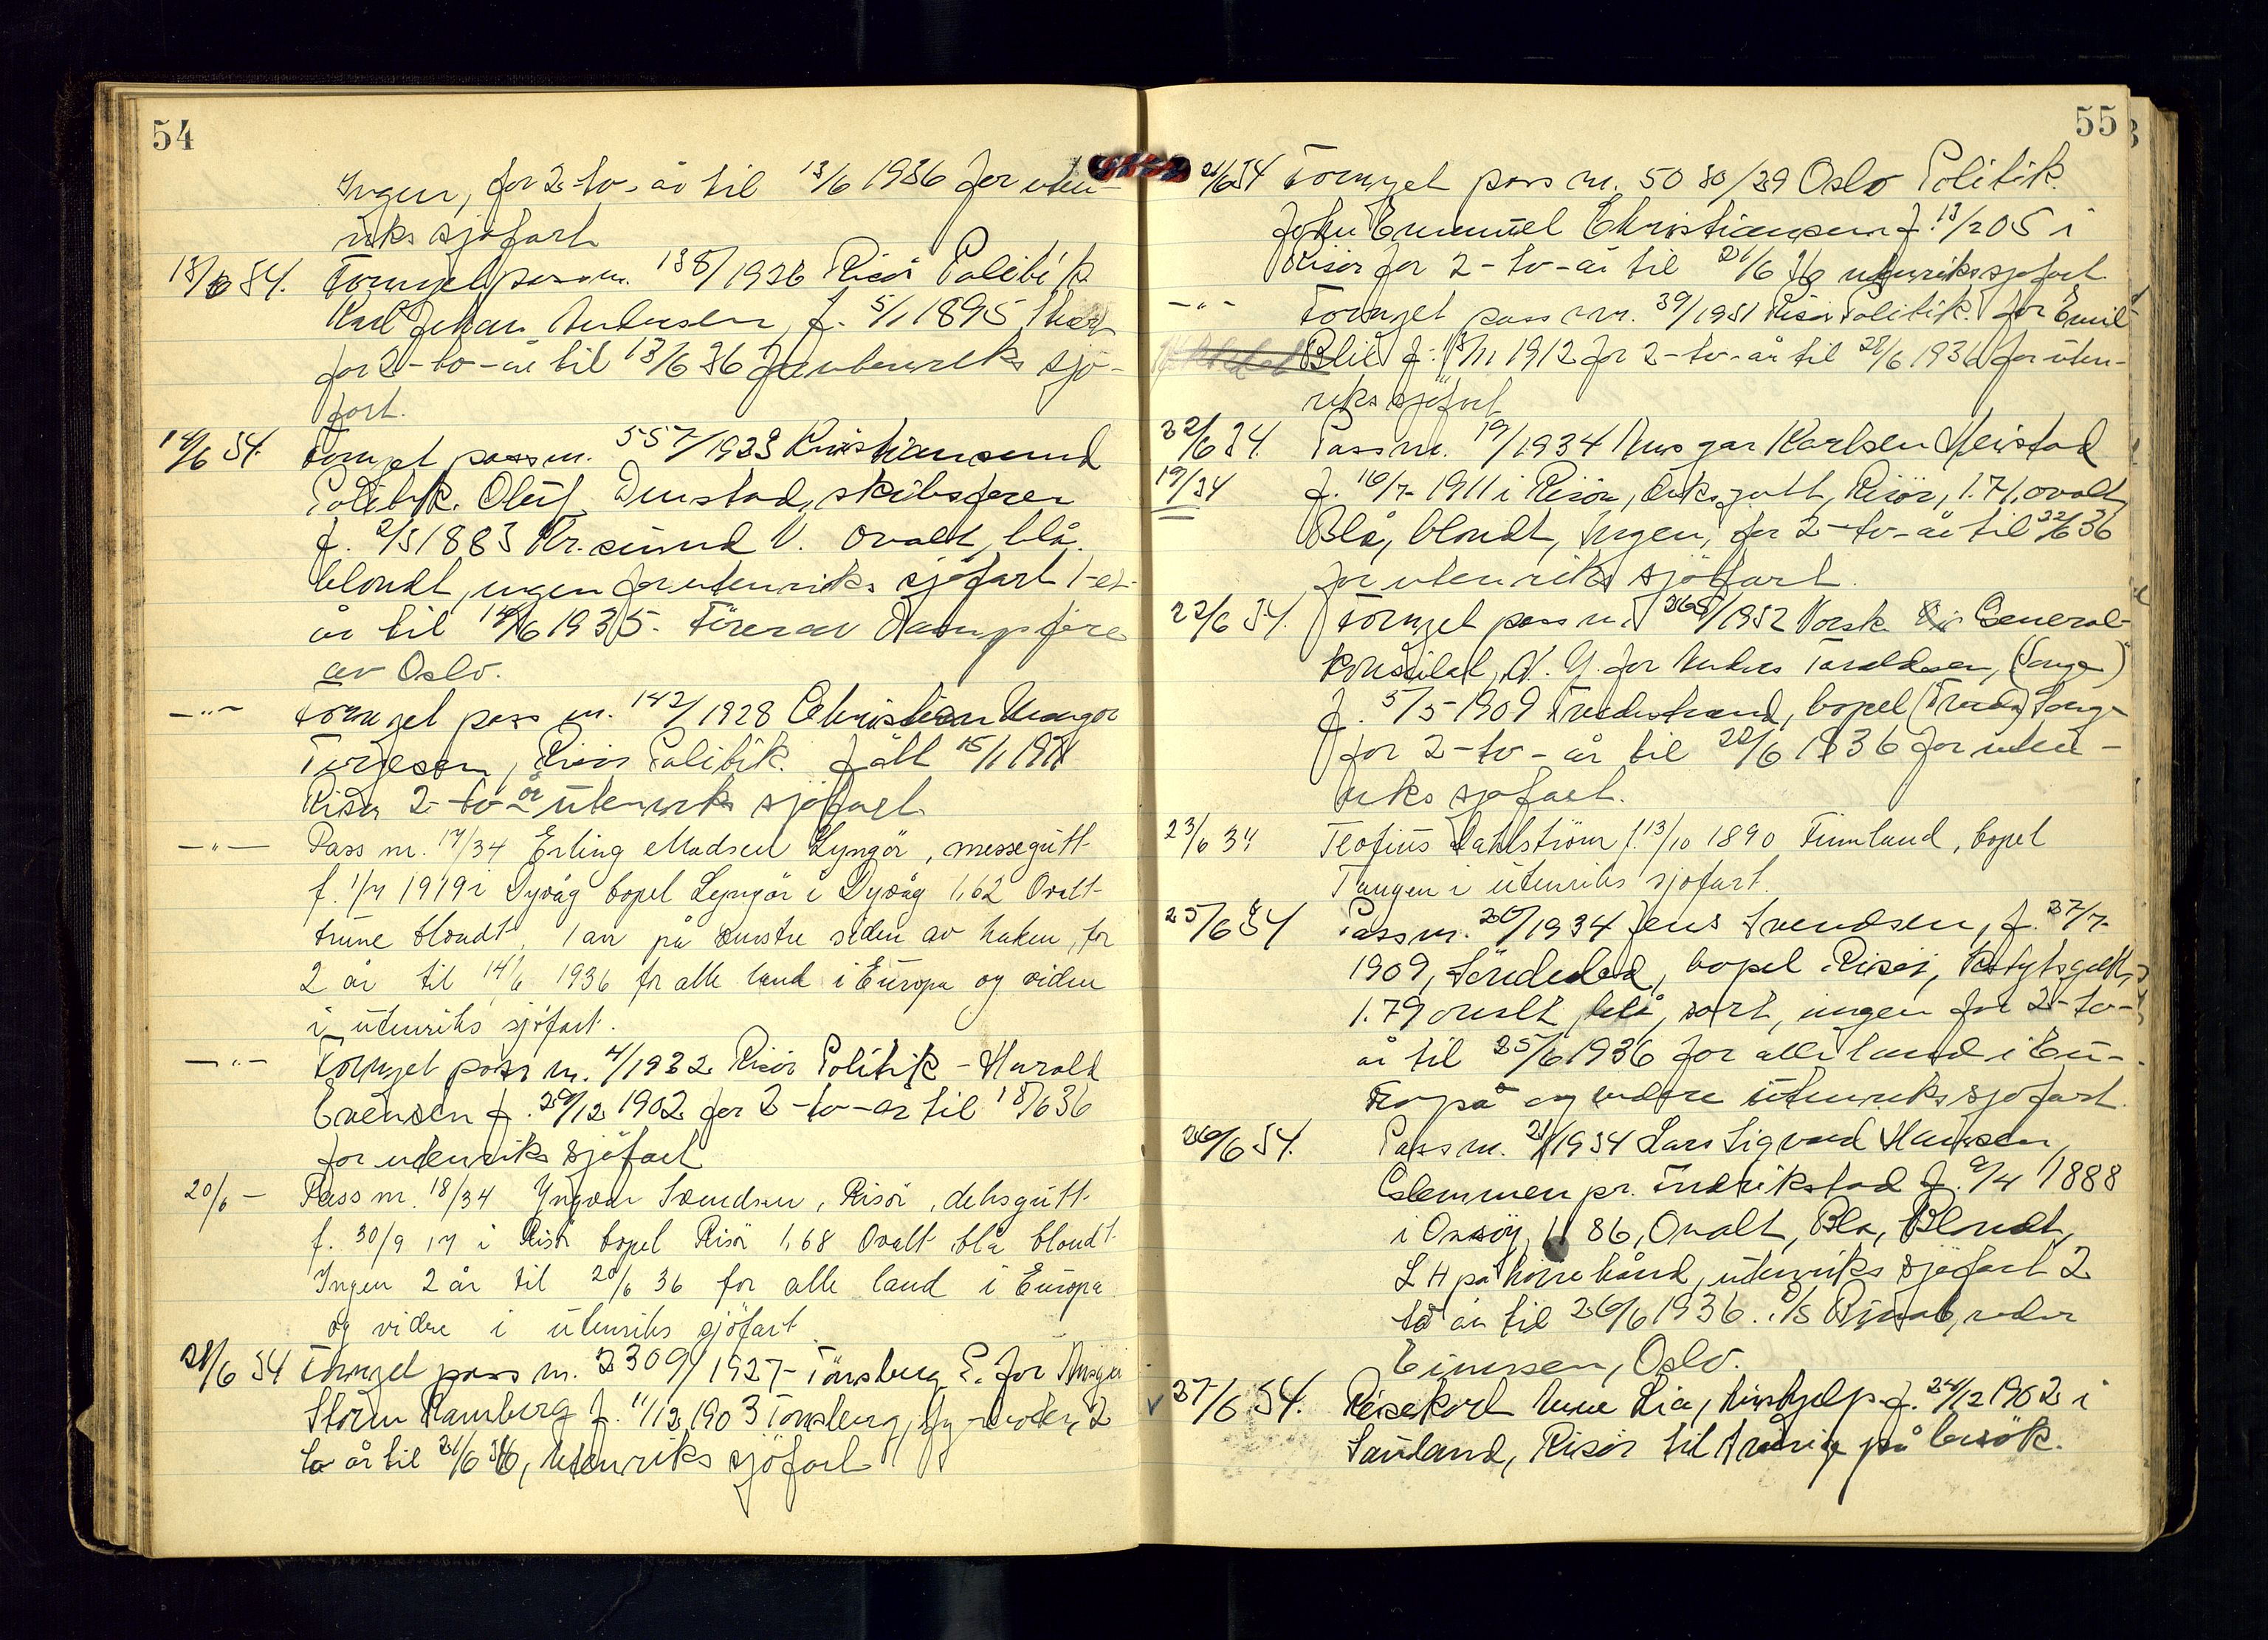 54
Ingen, for 2-to-år til 13/6 1936 for uten-
riks sjöfart
13/6 34. Fornyet pass nr. 138/1926 Risör Politik
Karl Johan Andersen, f. 5/1 1895
for 2-to-år til 13/6 36 for utenriks sjö-
fart.
14/6 34. Fornyet pass nr. 557/1933 Kristiansund
Politik. Oluf Denstad, skibsförer
f. 2/5 1883 Kr.sund N. ovalt, blå.
blondt, ingen for utenriks sjöfart 1-et-
år til 14/6 1935. Förer av
av Oslo.
—"— Fornyet pass nr. 142/1928 Christian
Terjesen, Risör Politik. født 15/1 1911
Risör 2-to-år utenriks sjöfart
—"— Pass nr. 17/34 Erling Madsen Lyngör, messegutt
f. 1/7 1919 i Dyvåg bopel Lyngör i Dyvåg 1,62 Ovalt
brune blondt, 1 arr på venstre siden av haken, for
2 år til 14/6 1936 for alle land i Europa og viden
i utenriks sjöfart.
—"— Fornyet pass nr. 4/1932 Risör Politik - Harald
Evensen f. 29/12 1902 for 2-to-år til 18/6 36
for utenriks sjöfart
20/6 — Pass nr. 18/34 Yngvar Svendsen, Risör, deksgutt
f. 30/9 17 i Risör bopel Risör 1,68 Ovalt blå blondt
Ingen 2 år til 20/6 36 for alle land i Europa
og videre i utenriks sjöfart.
21/6 34 Fornyet pass nr. 2309/1927 - Tönsberg P. for
Storm Ramberg f. 11/12 1903 Tönsberg, 2
to år til 21/6 36, utenriks sjöfart
55
21/6 34 Fornyet pass nr. 5080/29 Oslo Politik.
John Emanuel Christiansen f. 13/2 05 i
Risör for 2-to-år til 21/6 36 utenriks sjöfart
—"— Fornyet pass nr. 39/1931 Risör Politik. for Emil
Blie f. 18/11 1912 for 2-to-år til 21/6 1936 for uten-
riks sjöfart
22/6 34. Pass nr. 19/1934 Ansgar Karlsen Heistad
19/34 f. 16/7 1911 i Risör, deksgutt, Risör, 1.71, ovalt
Blå, blondt, Ingen, for 2-to-år til 22/6 36
for utenriks sjöfart.
22/6 34. Fornyet pass nr. 368/1932 Norsk General-
konsulat, N. Y. for Anders Taraldsen, (Songe)
f. 5/5 1909 Tvedestrand, bopel (Tveda) Songe
for 2-to-år til 22/6 1936 for uten-
riks sjöfart.
23/6 34 Teofius Dahlström f. 13/10 1890 Finnland, bopel
Tangen i utenriks sjöfart.
25/6 34 Pass nr. 20/1934 Jens Svendsen, f. 27/7-
1909, Söndeled, bopel Risör,
1.79 ovalt, blå, sort, ingen for 2-to-
år til 25/6 1936 for alle land i Eu-
ropa og videre utenriks sjöfart.
26/6 34. Pass nr. 21/1934 Lars Sigvard Hansen,
Glemmen pr. Fredrikstad f. 2/4 1888
i Onsöy, 1 86, Ovalt, Blå, Blondt,
L H på höire hånd, utenriks sjöfart 2
to år til 26/6 1936. reder
Einersen, Oslo.
27/6 34. Reisekort Anne Lia, hushjelp f. 24/12 1902 i
Sauland, Risör til Sverige på besök.